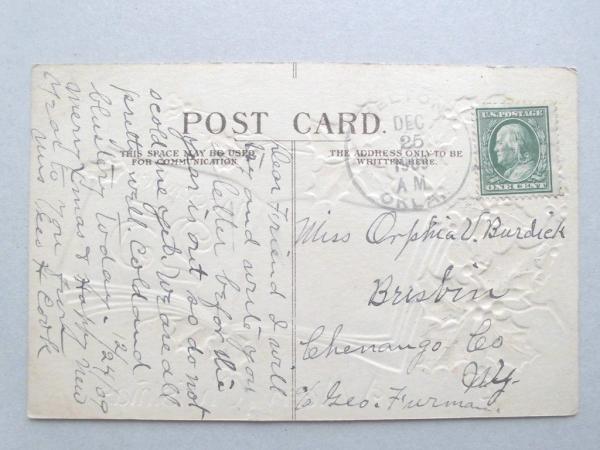 POST CARD.
THIS SPACE MAY BE USED
FOR COMMUNICATION.
THE ADDRESS ONLY TO BE
WRITTEN HERE.
DEC
25
1909
A M
OKLA.
U.S. POSTAGE
ONE CENT
Dear Friend I will
try and write you
a letter before this
year is out so do not
scold me yet. We are all
pretty well. cold and
today. 12/24/09
merry Xmas & Happy New
Year to you from
Mrs Geo H Cook
Miss Orphia V. Burdick
Brisbin
Chenango Co
NY.
c/o Geo. Furman.